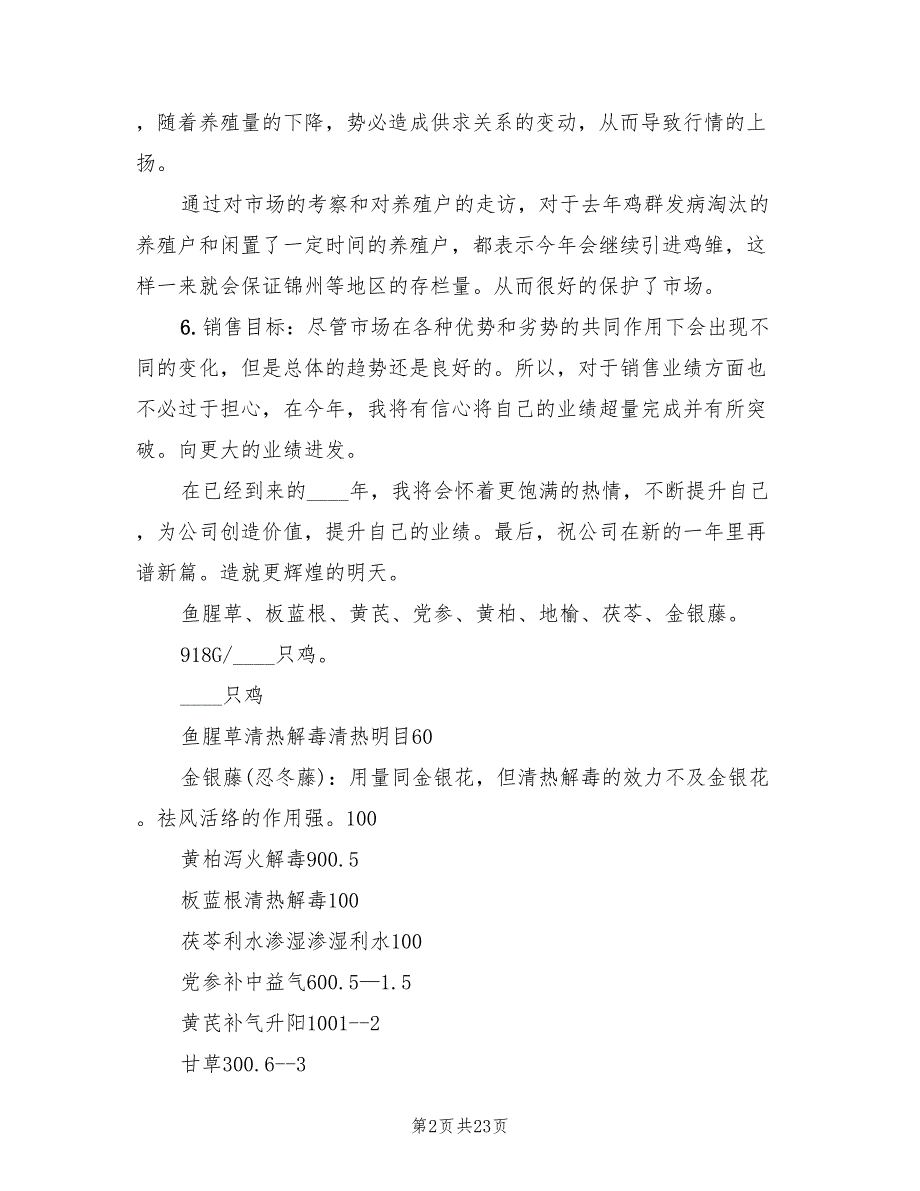 ，随着养殖量的下降，势必造成供求关系的变动，从而导致行情的上
扬。
通过对市场的考察和对养殖户的走访，对于去年鸡群发病淘汰的
养殖户和闲置了一定时间的养殖户，都表示今年会继续引进鸡雏，这
样一来就会保证锦州等地区的存栏量。从而很好的保护了市场。
6.销售目标：尽管市场在各种优势和劣势的共同作用下会出现不
同的变化，但是总体的趋势还是良好的。所以，对于销售业绩方面也
不必过于担心，在今年，我将有信心将自己的业绩超量完成并有所突
破。向更大的业绩进发。
在已经到来的____年，我将会怀着更饱满的热情，不断提升自己
，为公司创造价值，提升自己的业绩。最后，祝公司在新的一年里再
谱新篇。造就更辉煌的明天。
鱼腥草、板蓝根、黄芪、党参、黄柏、地榆、茯苓、金银藤。
918G/____只鸡。
____只鸡
鱼腥草清热解毒清热明目60
金银藤(忍冬藤)：用量同金银花，但清热解毒的效力不及金银花
。祛风活络的作用强。100
黄柏泻火解毒900.5
板蓝根清热解毒100
茯苓利水渗湿渗湿利水100
党参补中益气600.5—1.5
黄芪补气升阳1001--2
甘草300.6--3
第2页共23页